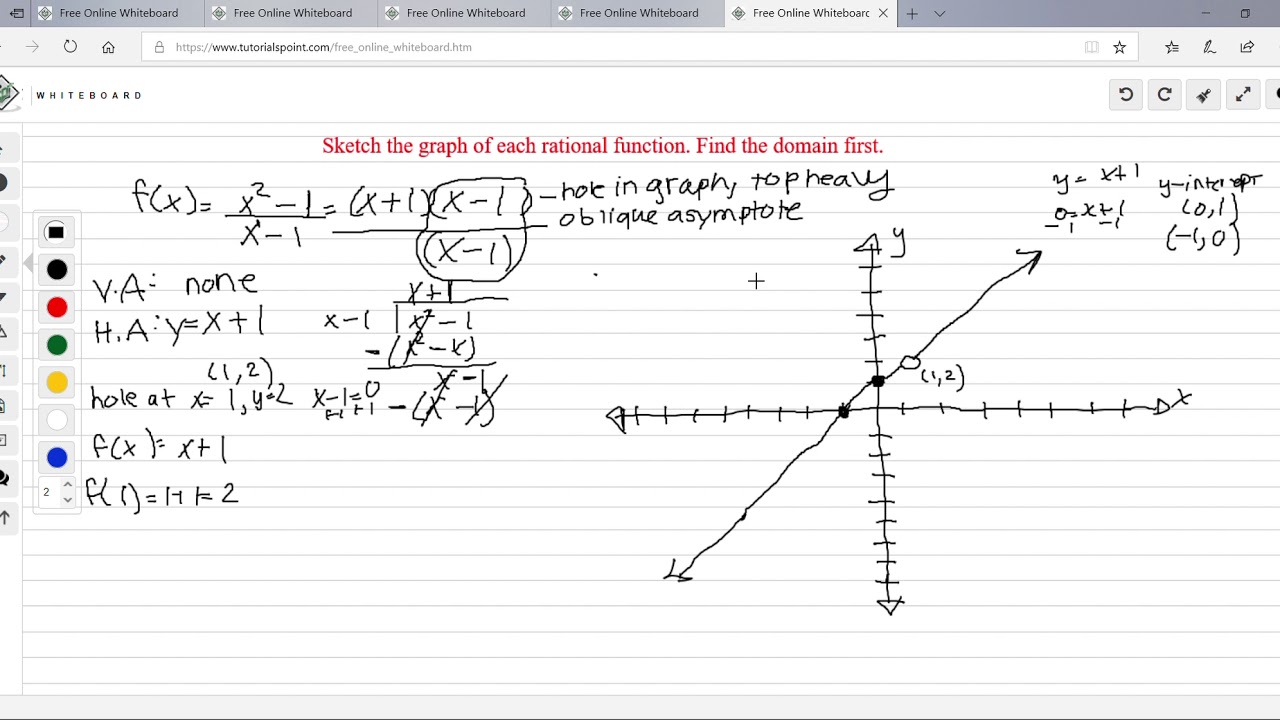 Free Online Whiteboard Free Online Whiteboard Free Online Whiteboard Free Online Whiteboard Free Online Whiteboard
https://www.tutorialspoint.com/free_online_whiteboard.htm
WHITEBOARD
Sketch the graph of each rational function. Find the domain first.
f(x) = x² - 1 / x - 1 = (x+1)(x-1) / (x-1) - hole in graph, top heavy
oblique asymptote
y = x+1
0 = x + 1
-1 -1
y-intercept
(0,1)
(-1,0)
V.A: none
H.A: y = x + 1
x+1
x-1 x² - 1
- (x² - x)
x - 1
- (x - 1)
(1,2)
hole at x = 1, y=2
x-1=0
+1 +1
f(x) = x+1
f(1) = 1+1 = 2
2
y
x
(1,2)